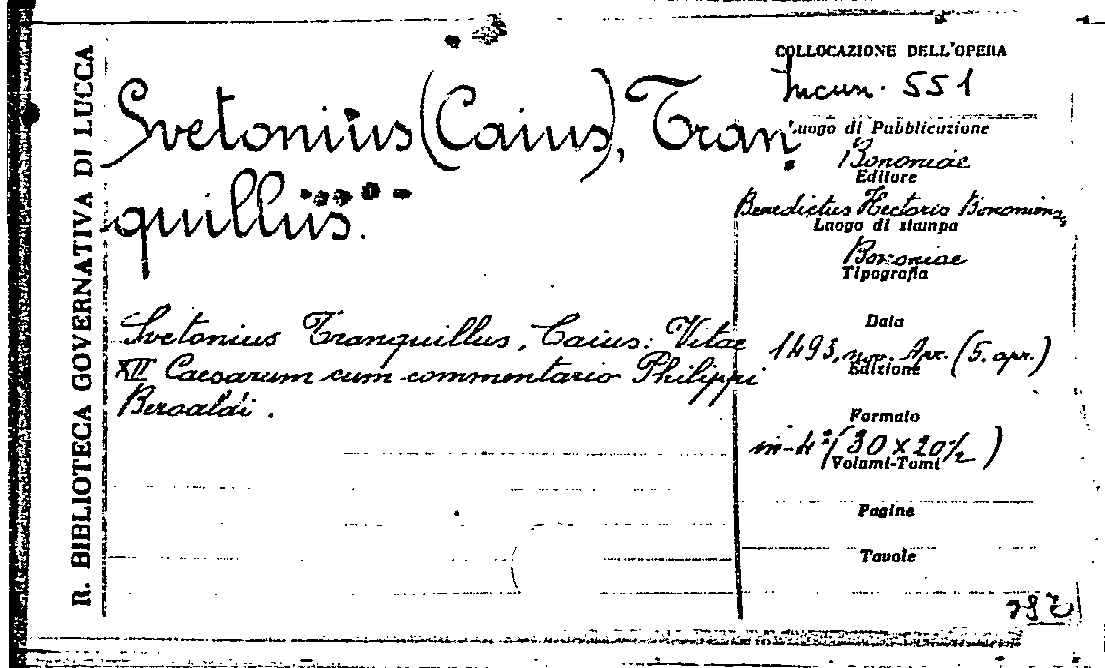 R. BIBLIOTECA GOVERNATIVA DI LUCCA
Svetonius (Caius), Tran
quillus.
Svetonius Tranquillus, Caius: Vitae
XII Caesarum cum commentario Philippi
Beroaldi.
COLLOCAZIONE DELL'OPERA
Incun. 551
Luogo di Pubblicazione
Bononiae
Editore
Benedictus Hectoris Bononiens
Luogo di stampa
Bononiae
Tipografia
Data
1493, non. Apr. (5. apr.)
Edizione
Formato
in-4° (30 x 20½)
Volumi-Tomi
Pagine
Tavole